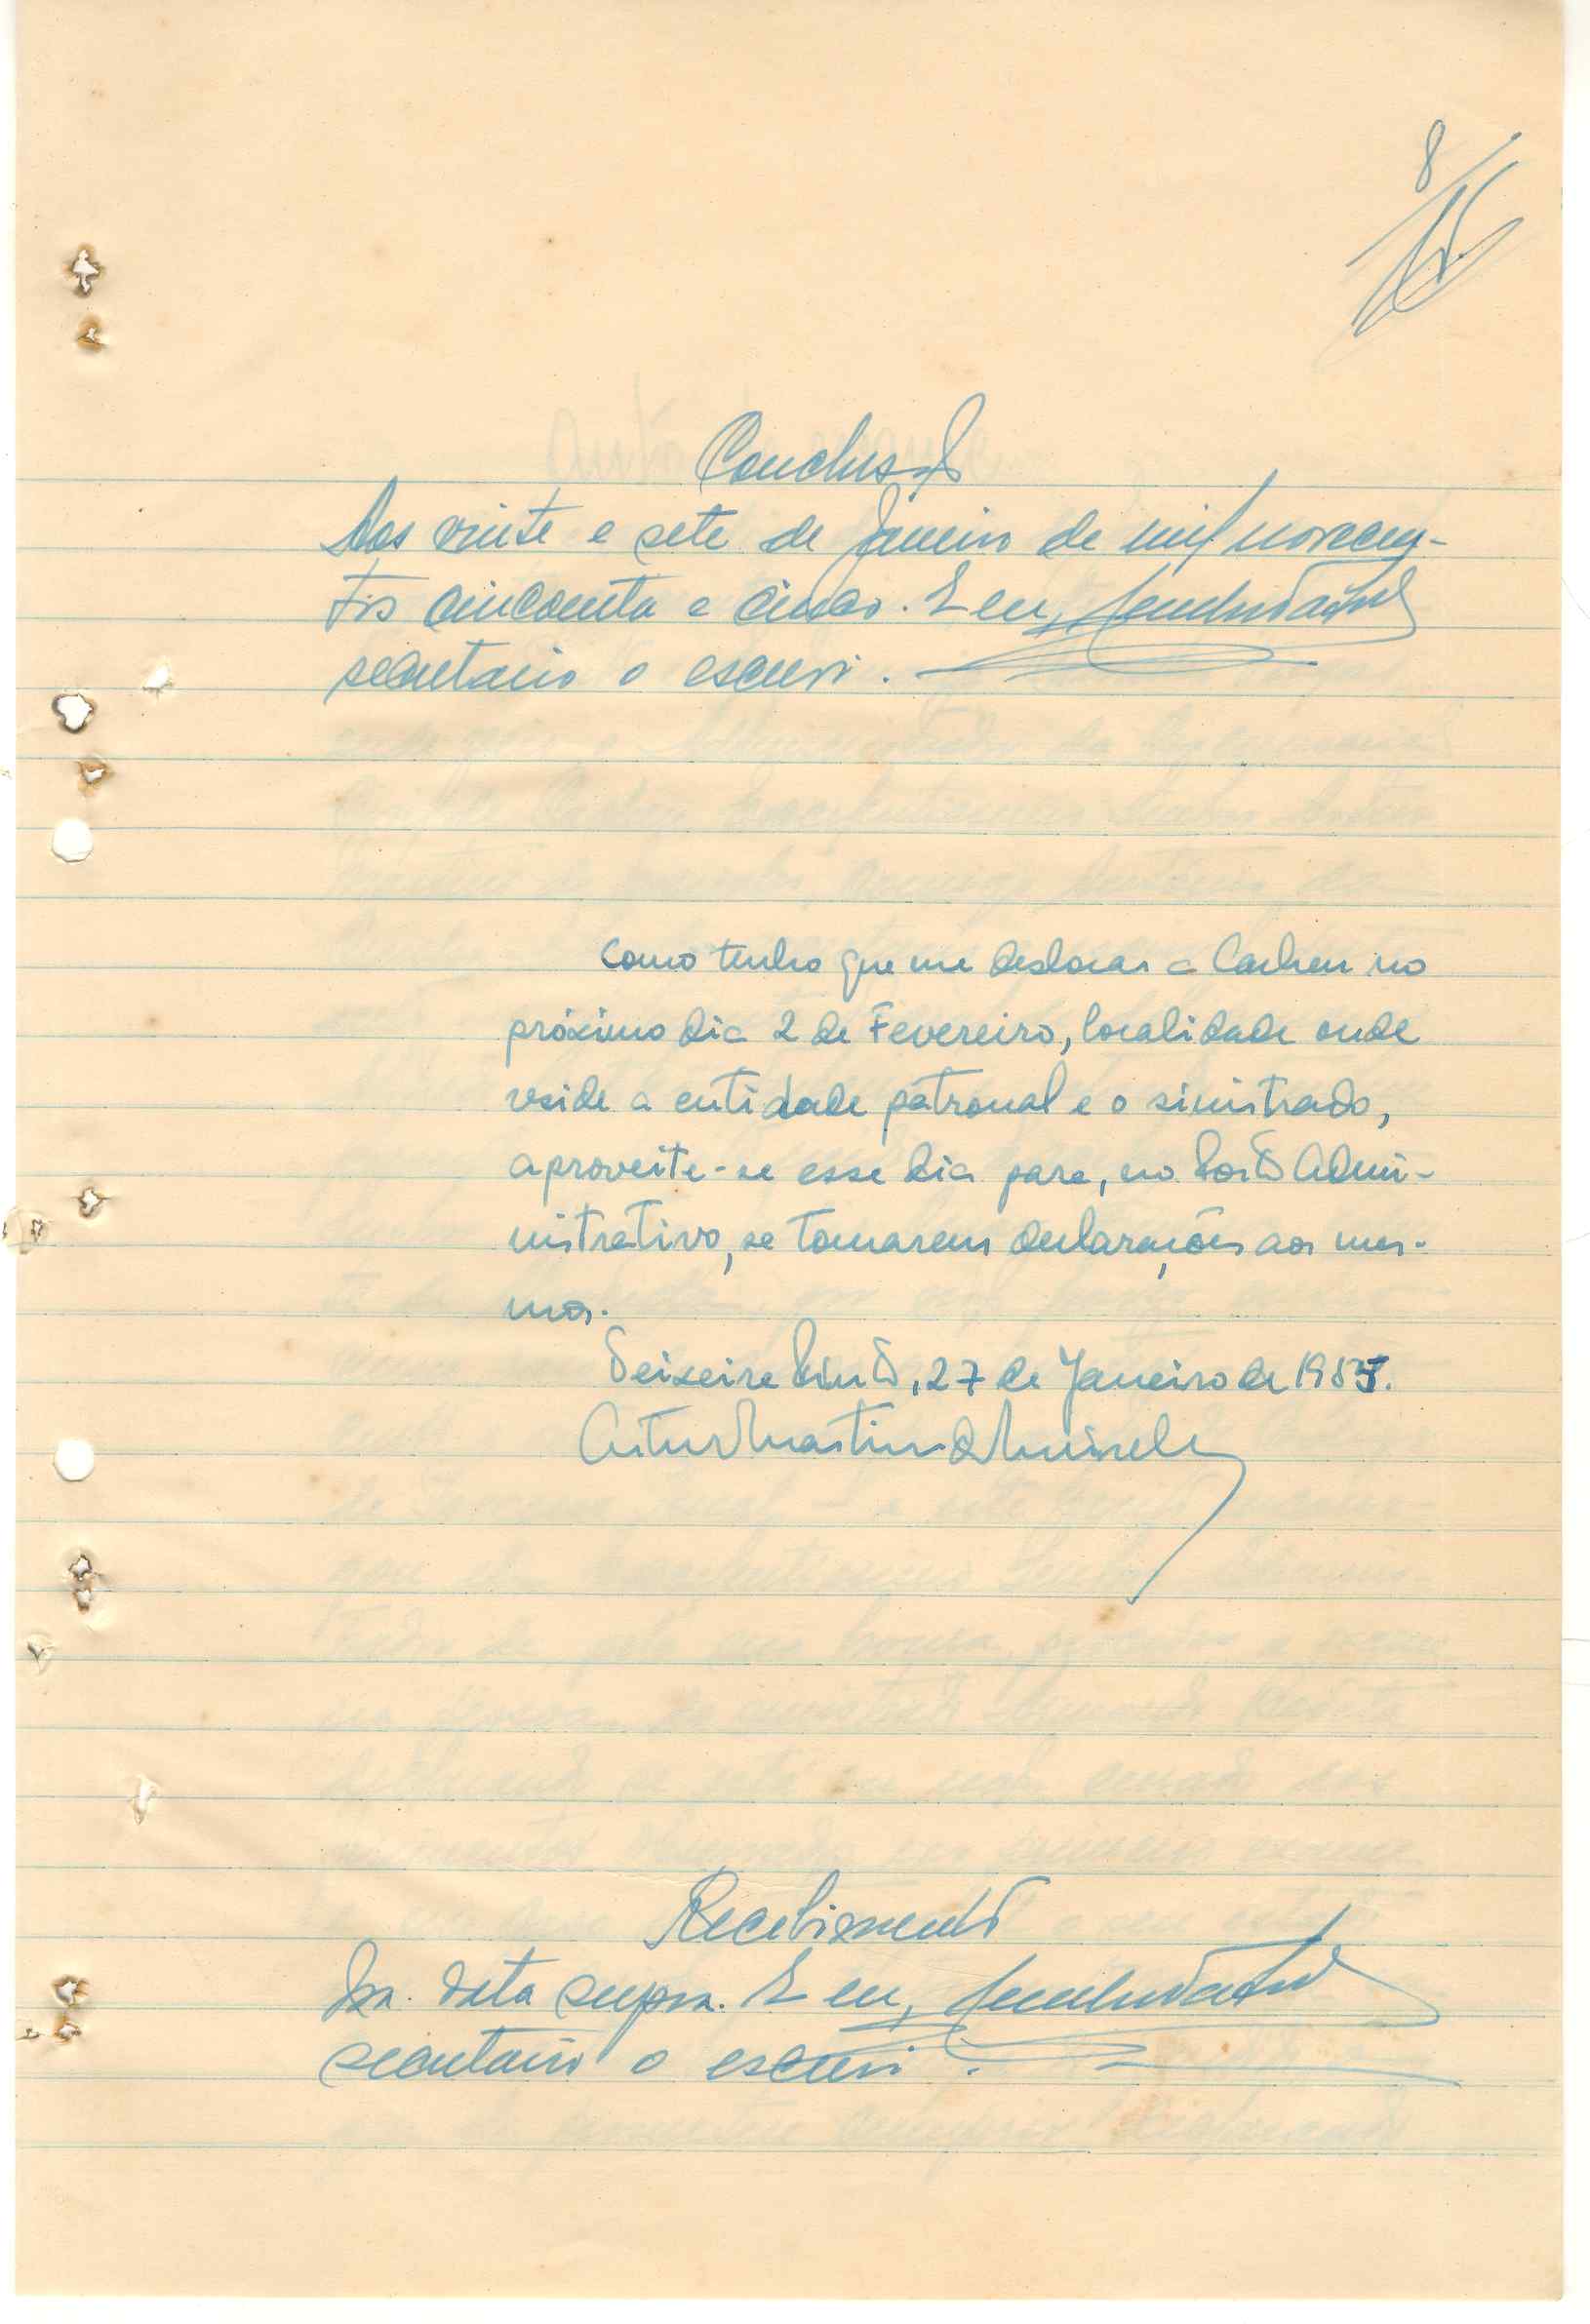 8
Conclusão
Aos vinte e sete de Janeiro de mil novecen-
tos cincoenta e cinco. E eu,
secretario o escrevi.
Como tenho que me deslocar a Cacheu no
próximo dia 2 de Fevereiro, localidade onde
reside a entidade patronal e o sinistrado,
aproveite-se esse dia para, no Posto Admi-
nistrativo, se tomarem declarações aos mes-
mos.
Teixeira Pinto, 27 de Janeiro de 1955.
Artur Martins de Meireles
Recebimento
Na data supra. E eu,
secretario o escrevi.